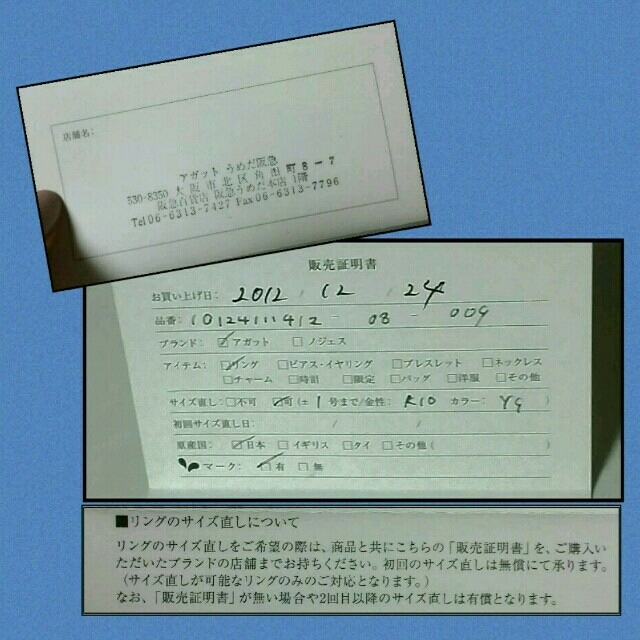 店舗名:
アガット うめだ阪急
530-8350 大阪市北区角田町8-7
阪急百貨店 阪急うめだ本店 1階
Tel 06-6313-7427 Fax 06-6313-7796
販売証明書
お買い上げ日: 2012 / 12 / 24
品番: 10124111412 - 08 - 009
ブランド: ☑アガット □ノジェス
アイテム: ☑リング □ピアス・イヤリング □ブレスレット □ネックレス
□チャーム □時計 □限定 □バッグ □洋服 □その他
サイズ直し: □不可 ☑可(± 1 号まで/金性: K10 カラー: YG )
初回サイズ直し日: / /
原産国: ☑日本 □イギリス □タイ □その他( )
マーク: ☑有 □無
■リングのサイズ直しについて
リングのサイズ直しをご希望の際は、商品と共にこちらの「販売証明書」を、ご購入い
ただいたブランドの店舗までお持ちください。初回のサイズ直しは無償にて承ります。
(サイズ直しが可能なリングのみのご対応となります。)
なお、「販売証明書」が無い場合や2回目以降のサイズ直しは有償となります。